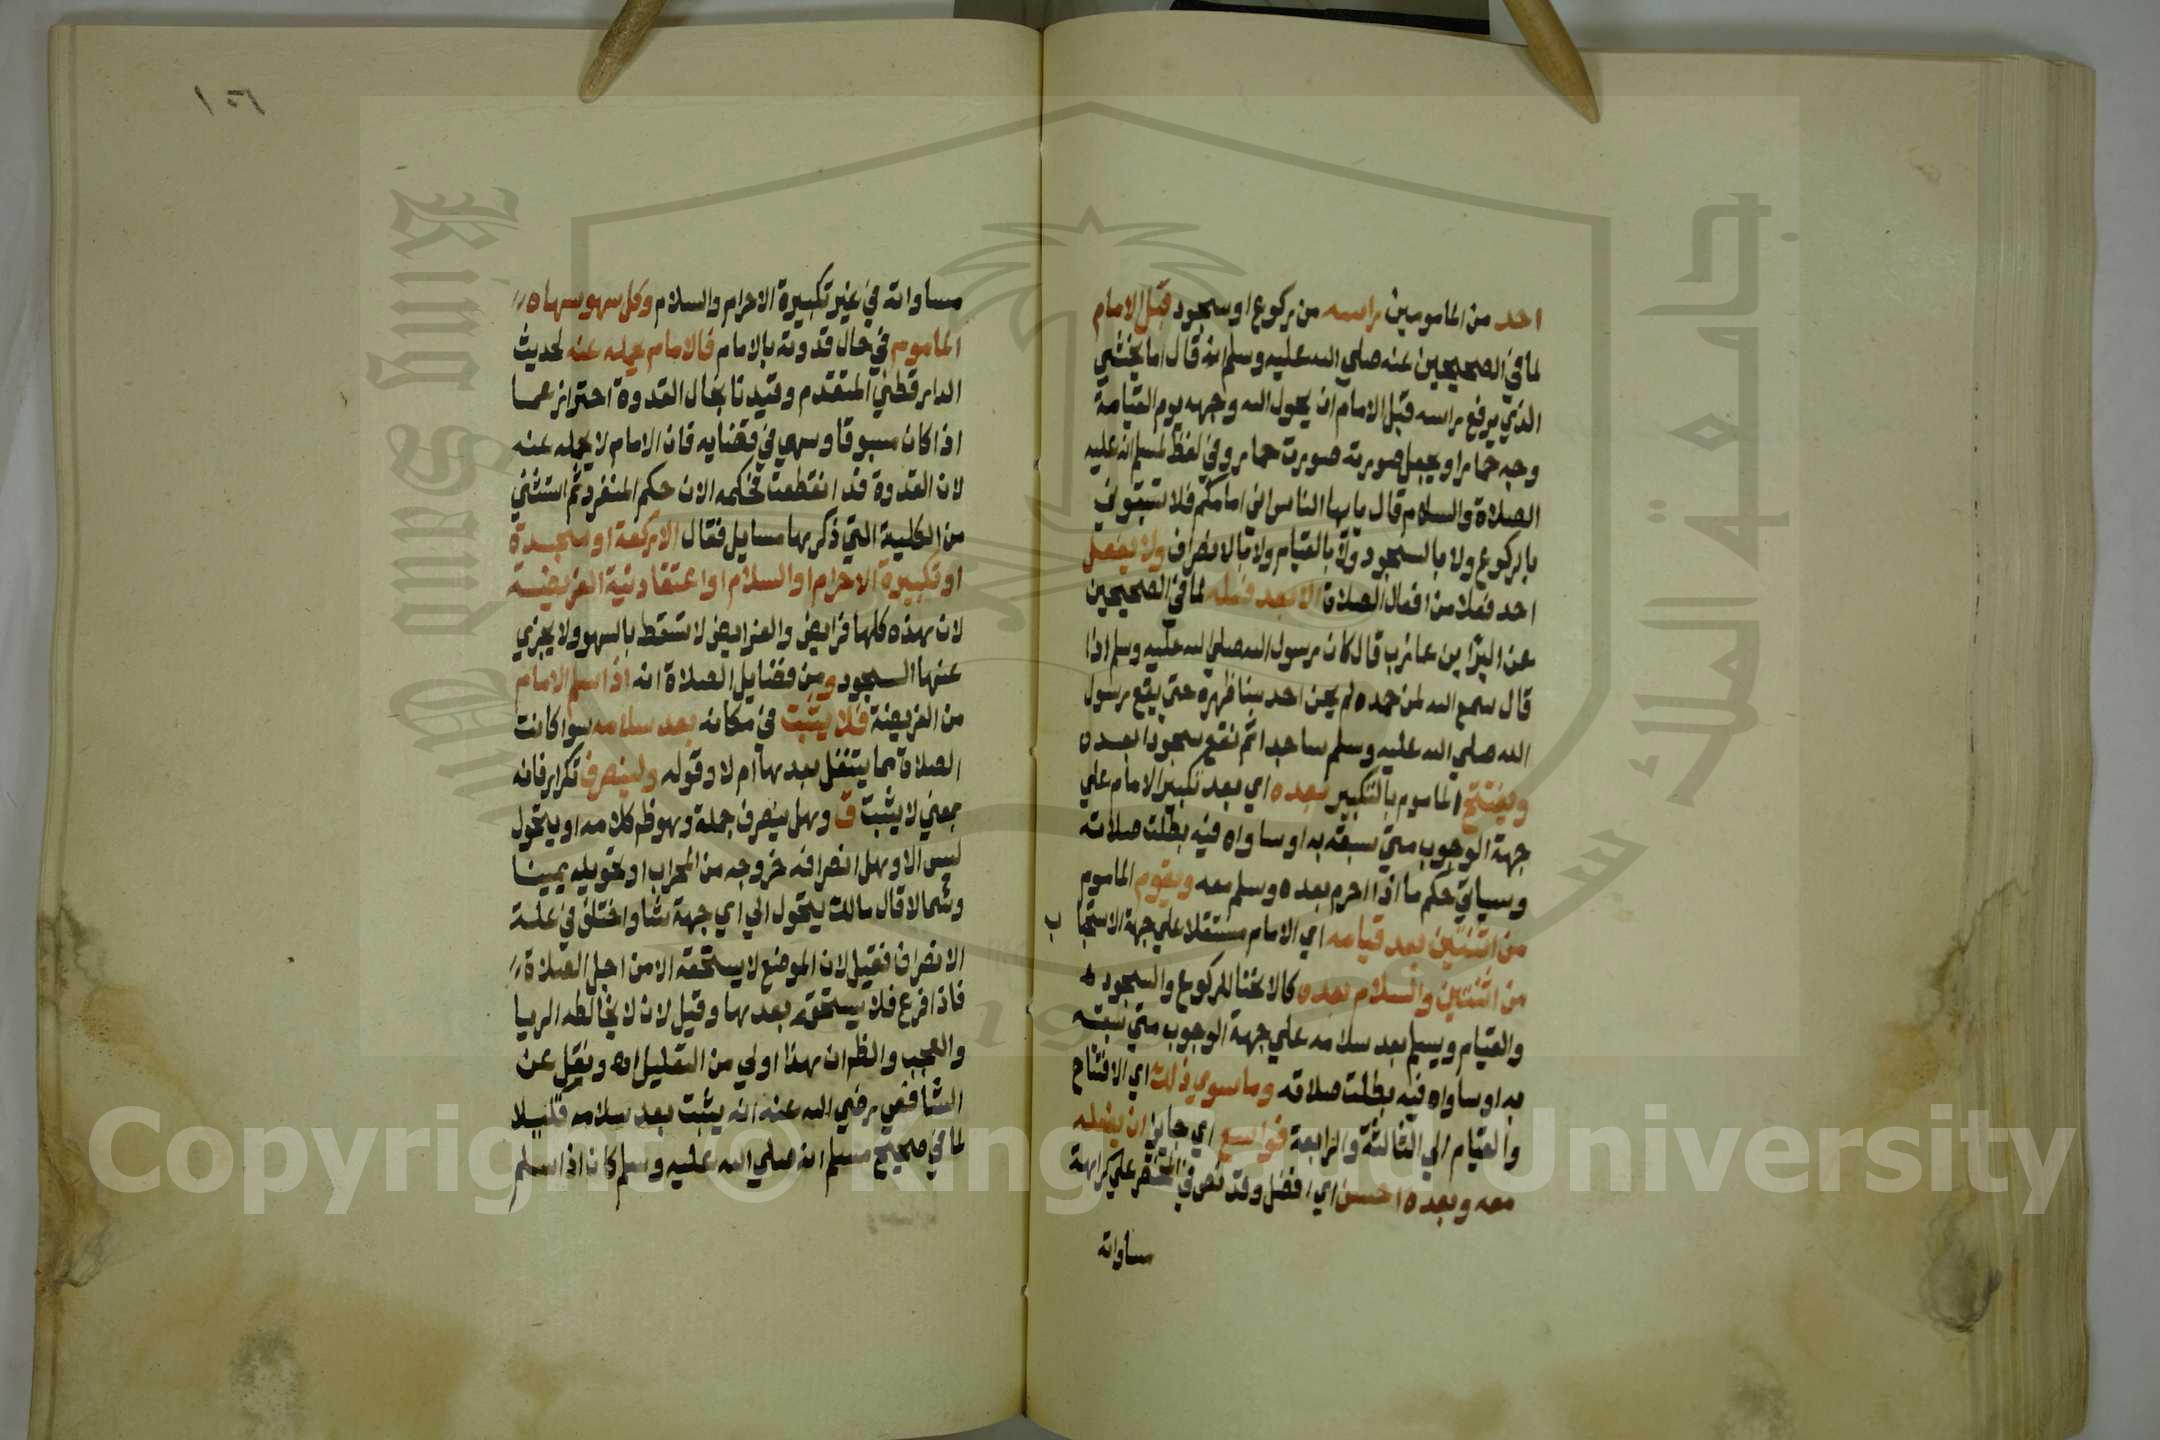 احد من المامومين راسه من ركوع او سجود قبل الامام
لما في الصحيحين عنه صلي الله عليه وسلم انه قال اما يخشي
الذي يرفع راسه قبل الامام ان يحول الله وجهه يوم القيامة
وجه حمار او يجعل صورته صورت حمار وفي لفظ لمسلم انه عليه
الصلاة والسلام قال يا يها الناس اني امامكم فلا تسبقوني
بالركوع ولا بالسجود ولا بالقيام ولا بالانصراف ولا يفعل
احد فعلا من افعال الصلاة الا بعد فعله لما في الصحيحين
عن البرا بن عازب قال كان رسول الله صلي الله عليه وسلم اذا
قال سمع الله لمن حمده لم يحن احد منا ظهره حتي يقع رسول
الله صلي الله عليه وسلم ساجدا ثم نقع سجودا بعده
ويفتتح الماموم بالتكبير بعده اي بعد تكبير الامام علي
جهة الوجوب متي سبقه به او ساواه فيه بطلت صلاته
وسياتي حكم ما اذا احرم بعده وسلم معه ويقوم الماموم
من اثنتين بعد قيامه اي الامام مستقلا علي جهة الاستحبا ب
من اثنتين والسلام بعده كالانحنا للركوع والسجود
والقيام ويسلم بعد سلامه علي جهة الوجوب متي سبقه
به او ساواه فيه بطلت صلاته وما سوي ذلك اي الافتتاح
والقيام الي الثالثة والرابعة فواسع اي جايز ان يفعله
معه وبعده احسن اي افضل وقد نص في المختصر علي كراهة
مساواته
١٥٦
مساواته في غير تكبيرة الاحرام والسلام وكل سهو سهاه
الماموم في حال قدوته بالامام فالامام يحمله عنه لحديث
الدارقطني المتقدم وقيدنا بحال القدوة احترازعما
اذا كان مسبوقا وسهي في قضايه فان الامام لا يحمله عنه
لان القدوة قد انقطعت فحكمه الان حكم المنفرد ثم استثني
من الكلية التي ذكرها مسايل فقال الا ركعة او سجدة
او تكبيرة الاحرام او السلام او اعتقاد نية الفريضة
لان هذه كلها فرايض والفرايض لا تسقط بالسهو ولا يجزي
عنها السجود ومن فضايل الصلاة انه اذا سلم الامام
من الفريضة فلا يثبت في مكانه بعد سلامه سوا كانت
الصلاة مما يتنفل بعدها ام لا وقوله ولينصرف تكرار فانه
بمعني لا يثبت ق وهل ينصرف جملة وهو ظم كلامه او يتحول
ليس الا وهل انصرافه خروجه من المحراب او تحويله يمينا
وشمالا قال مالك يتحول الي اي جهة شا واختلف في علة
الانصراف فقيل لان الموضع لا يستحقه الا من اجل الصلاة
فاذا فرغ فلا يستحقه بعدها وقيل لان لا يخالطه الريا
والعجب والظم ان هذا اولي من التعليل اه ونقل عن
الشافعي رضي الله عنه انه يثبت بعد سلامه قليلا
لما في صحيح مسلم انه صلي الله عليه وسلم كان اذا سلم
جامعة الملك سعود
King Saud University
Copyright © King Saud University